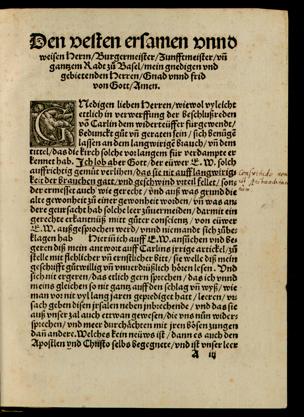 Den vesten ersamen vnnd
weisen Herrn/Burgermeister/Zunfftmeister/vñ
gantzem Radt zů Basel/mein gnedigen vnd
gebietenden Herren/Gnad vnnd frid
von Gott/Amen.
GNedigen lieben Herren/wiewol vyleicht
ettlich in verwerffung der beschlußreden
võ Carlin dem widerteüffer fürgewendt/
bedunckt gůt vñ geraten sein/sich benüge
lassen an dem langwirige brauch/vñ dem
tittel/das die kirch solche vorlangem für verdampte er
kennet hab. Ich lob aber Gott/der eüwer E.W. solch
auffrichtig gemüt verlihen/das sie nit auff langwirig
keit der brauchen gatt/vnd geschwind vrteil fellet/
der ermesset auch wie gerecht/vnd auß was grund die
alte gewonheit zů einer gewonheit worden/vñ was an
dere gemeinschafft hab solche leer zůuermeiden/darmit ein
gerechte erkantnüß mit gůter conscientz/von eüwer
E.W. außgesprochen werd/vnnd niemandt sich zůbe
klagen hab. Hierüm ich auff E.W. ansůchen vnd be
geren diß mein antwort auff Carlins irrige artickel/zů
stelle mit fleissiger vñ ernstlicher bitt/sie welle diß mein
geschrifft gůtwillig vñ vnuerdrüßlich hören lesen. Vnd
sich nit ergeren/das etlich gern sprechen/das ich vnnd
meins gleichen so nit gang auff den schlag vñ wyß/wie
man vor mit vyl lang jaren geprediget hatt/leeren/vn
sach geben disen jrsalen neben ynbrechende/vnd das sie
auß vnser zal auch ettwan gewesen/die vns nün wider
sprechen/vnd meer durchächten mit jren bösen zungen
dañ andere. Welches kein neüws ist/dann es auch den
Apostlen vnd Christo selbs begegnete/vnd ist vnser leer
A iij